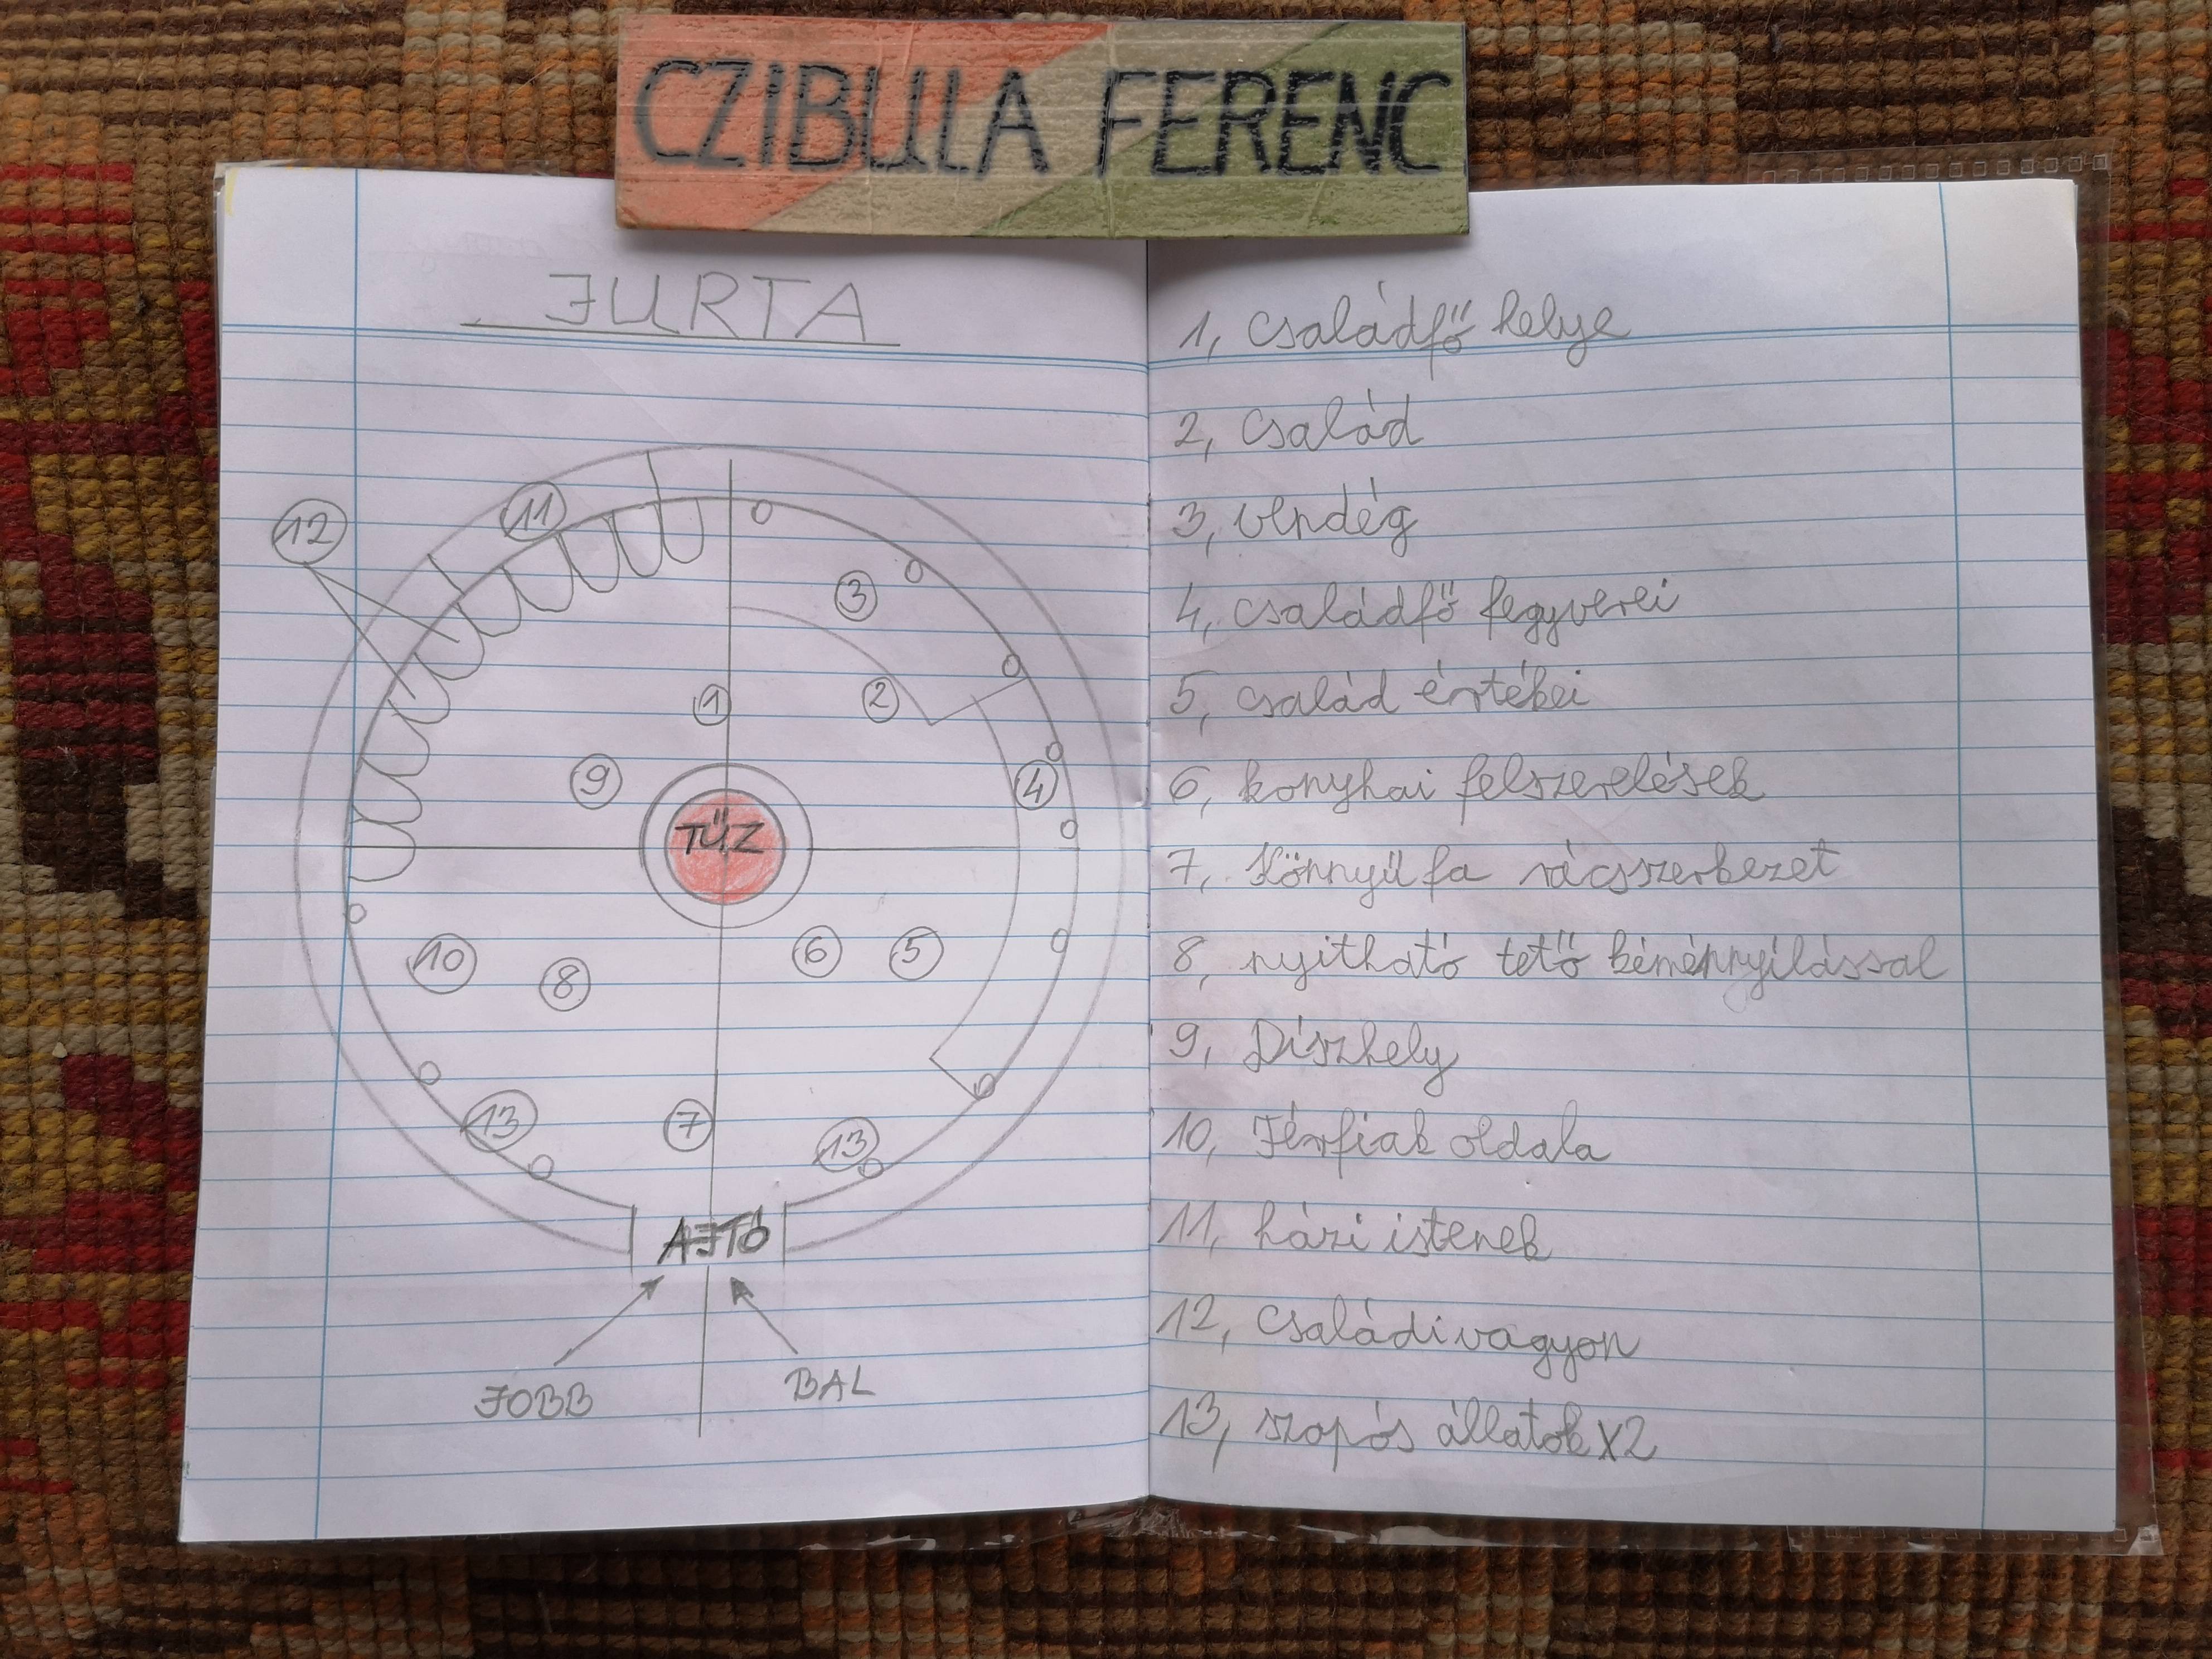 CZIBULA FERENC
JURTA
12
11
3
1
2
9
4
TŰZ
10
8
6
5
13
7
13
AJTÓ
JOBB
BAL
1, Családfő helye
2, Család
3, vendég
4, családfő fegyverei
5, család értékei
6, konyhai felszerelések
7, Könnyű fa rácsszerkezet
8, nyitható tető kéménnyílással
9, Díszhely
10, Férfiak oldala
11, házi istenek
12, Családi vagyon
13, szopós állatok X2